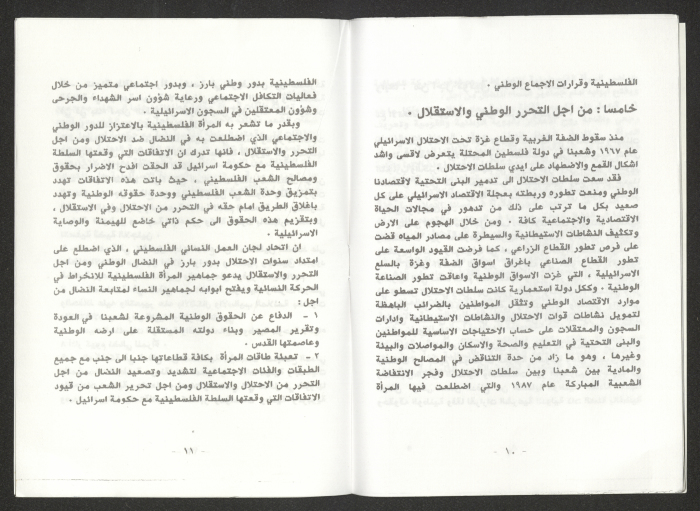 الفلسطينية وقرارات الاجماع الوطني .
خامسا : من اجل التحرر الوطني والاستقلال .
منذ سقوط الضفة الغربية وقطاع غزة تحت الاحتلال الاسرائيلي
عام ١٩٦٧ وشعبنا في دولة فلسطين المحتلة يتعرض لاقسى واشد
اشكال القمع والاضطهاد على ايدي سلطات الاحتلال .
فقد سعت سلطات الاحتلال الى تدمير البنى التحتية لاقتصادنا
الوطني ومنعت تطوره وربطته بعجلة الاقتصاد الاسرائيلي على كل
صعيد بكل ما ترتب على ذلك من تدهور في مجالات الحياة
الاقتصادية والاجتماعية كافة . ومن خلال الهجوم على الارض
وتكثيف النشاطات الاستيطانية والسيطرة على مصادر المياه قضت
على فرص تطور القطاع الزراعي ، كما فرضت القيود الواسعة على
تطور القطاع الصناعي باغراق اسواق الضفة وغزة بالسلع
الاسرائيلية ، التي غزت الاسواق الوطنية واعاقت تطور الصناعة
الوطنية . وككل دولة استعمارية كانت سلطات الاحتلال تسطو على
موارد الاقتصاد الوطني وتثقل المواطنين بالضرائب الباهظة
لتمويل نشاطات قوات الاحتلال والنشاطات الاستيطانية وادارات
السجون والمعتقلات على حساب الاحتياجات الاساسية للمواطنين
والبنى التحتية في التعليم والصحة والاسكان والمواصلات والبيئة
وغيرها ، وهو ما زاد من حدة التناقض في المصالح الوطنية
والمادية بين شعبنا وبين سلطات الاحتلال وفجر الانتفاضة
الشعبية المباركة عام ١٩٨٧ والتي اضطلعت فيها المرأة
- ١٠ -
الفلسطينية بدور وطني بارز ، وبدور اجتماعي متميز من خلال
فعاليات التكافل الاجتماعي ورعاية شؤون اسر الشهداء والجرحى
وشؤون المعتقلين في السجون الاسرائيلية .
وبقدر ما تشعر به المرأة الفلسطينية بالاعتزاز للدور الوطني
والاجتماعي الذي اضطلعت به في النضال ضد الاحتلال ومن اجل
التحرر والاستقلال ، فانها تدرك ان الاتفاقات التي وقعتها السلطة
الفلسطينية مع حكومة اسرائيل قد الحقت افدح الاضرار بحقوق
ومصالح الشعب الفلسطيني ، حيث باتت هذه الاتفاقات تهدد
بتمزيق وحدة الشعب الفلسطيني ووحدة حقوقه الوطنية وتهدد
باغلاق الطريق امام حقه في التحرر من الاحتلال وفي الاستقلال .
وبتقزيم هذه الحقوق الى حكم ذاتي خاضع للهيمنة والوصاية
الاسرائيلية .
ان اتحاد لجان العمل النسائي الفلسطيني ، الذي اضطلع على
امتداد سنوات الاحتلال بدور بارز في النضال الوطني ومن اجل
التحرر والاستقلال يدعو جماهير المرأة الفلسطينية للانخراط في
الحركة النسائية ويفتح ابوابه لجماهير النساء لمتابعة النضال من
اجل :
١ - الدفاع عن الحقوق الوطنية المشروعة لشعبنا في العودة
وتقرير المصير وبناء دولته المستقلة على ارضه الوطنية
وعاصمتها القدس .
٢ - تعبئة طاقات المرأة بكافة قطاعاتها جنبا الى جنب مع جميع
الطبقات والفئات الاجتماعية لتشديد وتصعيد النضال من اجل
التحرر من الاحتلال والاستقلال ومن اجل تحرير الشعب من قيود
الاتفاقات التي وقعتها السلطة الفلسطينية مع حكومة اسرائيل .
- ١١ -